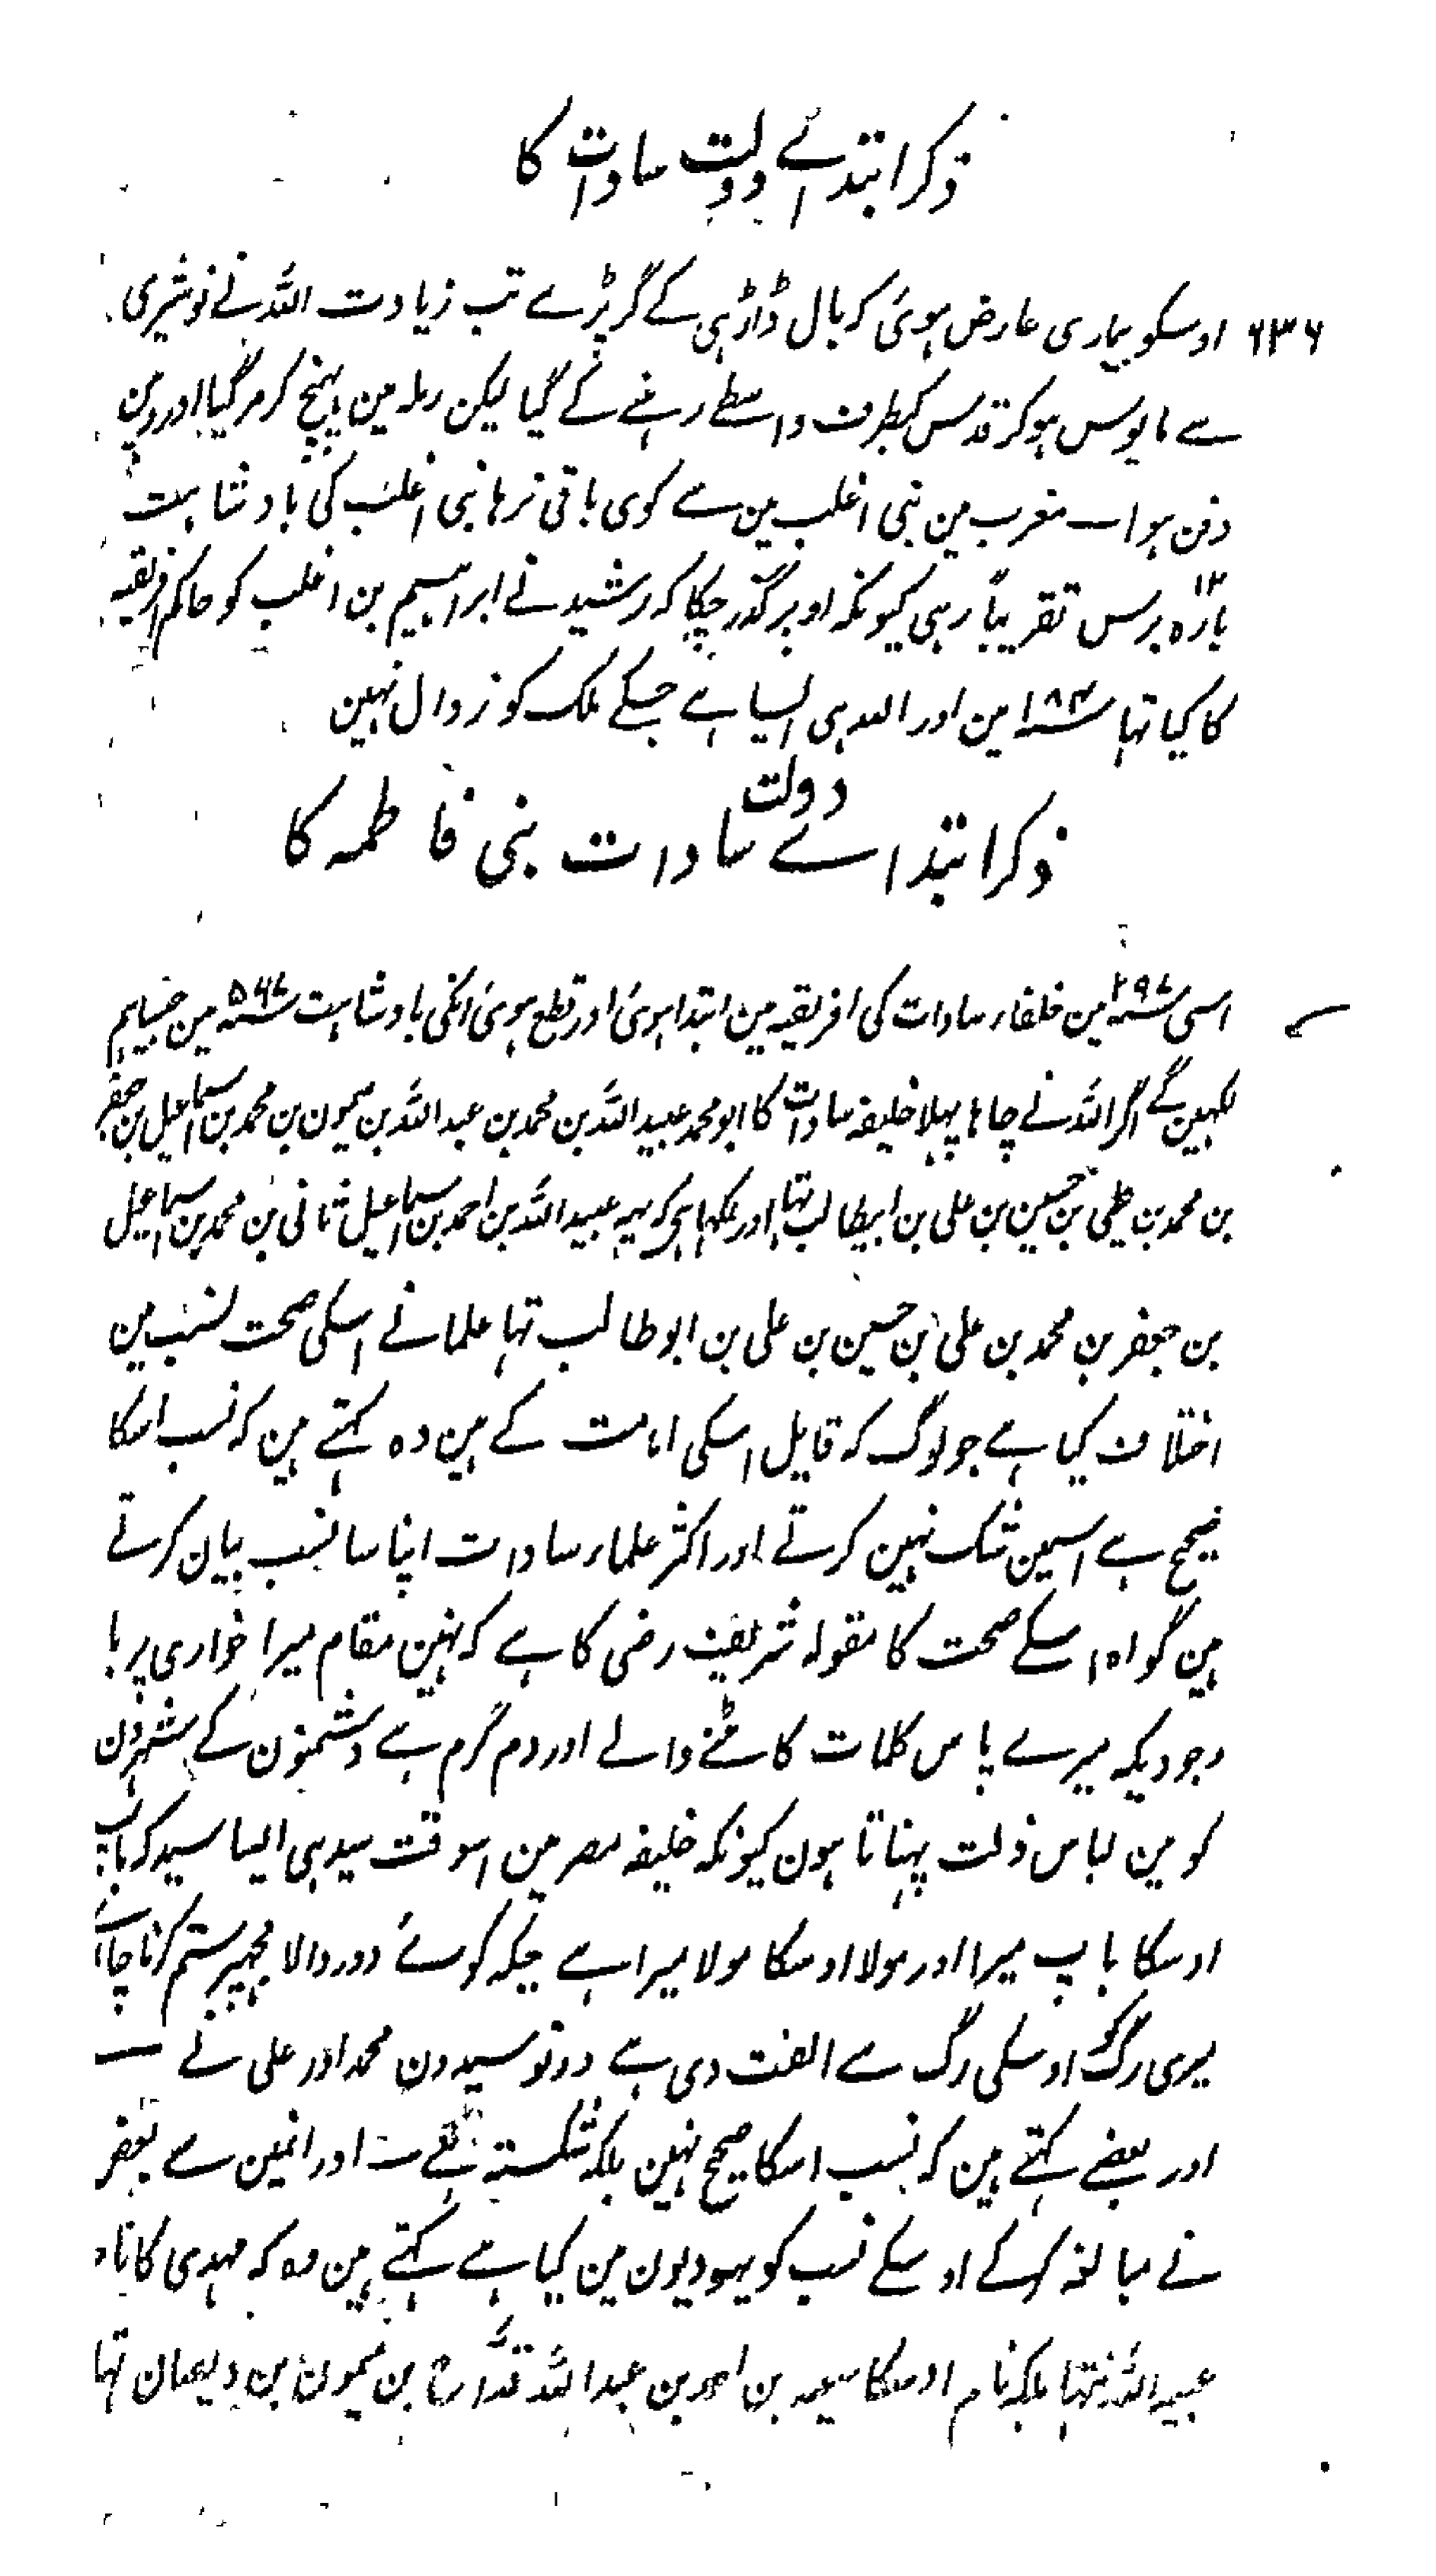 ذکر ابتدائے دولت سادات کا
۶۳۶ اوسکو بیماری عارض ہوئی کہ بال ڈاڑہی کے گر پڑے تب زیادت اللہ نے نوشیری
سے مایوس ہوکر قدس کیطرف واسطے رہنے کے گیا لیکن رملہ مین پہنچ کر مر گیا اور وہین
دفن ہوا ــ مغرب مین بنی اغلب مین سے کوی باقی نرہا بنی اغلب کی بادشاہت
بارہ ۱۲ برس تقریباً رہی کیونکہ اوپر گذر چکا کہ رشید نے ابراہیم بن اغلب کو حاکم افریقیہ
کا کیا تہا سنہ ۱۸۴ مین اور اللہ ہی ایسا ہے جسکے ملک کو زوال نہین
ذکر ابتدائے دولت سادات بنی فاطمہ کا
اسی سنہ ۲۹۶ مین خلفاء سادات کی افریقیہ مین ابتدا ہوئی اور قطع ہوئی انکی بادشاہت سنہ ۵۶۷ مین جیسا ہم
لکہین گے اگر اللہ نے چاہا پہلا خلیفہ سادات کا ابو محمد عبید اللہ بن محمد بن عبد اللہ بن میمون بن محمد بن اسماعیل بن جعفر
بن محمد بن علی بن حسین بن علی بن ابیطالب تہا اور لکہا ہی کہ یہہ عبید اللہ بن احمد بن اسماعیل ثانی بن محمد بن اسماعیل
بن جعفر بن محمد بن علی بن حسین بن علی بن ابو طالب تہا علما نے اسکی صحت نسب مین
اختلاف کیا ہے جو لوگ کہ قایل اسکی امامت کے ہین وہ کہتے ہین کہ نسب اسکا
صحیح ہے اسمین شک نہین کرتے اور اکثر علماء سادات اپنا سا نسب بیان کرتے
ہین گواہ اسکے صحت کا مقولہ شریف رضی کا ہے کہ نہین مقام میرا خواری پر با
وجودیکہ میرے پاس کلمات کاٹنے والے اور دم گرم ہے دشمنون کے شہرون
کو مین لباس ذلت پہناتا ہون کیونکہ خلیفہ مصر مین اسوقت سید ہی ایسا سید کہ باپ
اوسکا باپ میرا اور مولا اوسکا مولا میرا ہے جبکہ کوئے دور والا مجہپر ستم کرنا چاہے
میری رگ کو اوسکی رگ سے الفت دی ہے دونو سیدون محمد اور علی نے ــ
اور بعضے کہتے ہین کہ نسب اسکا صحیح نہین بلکہ شکستہ اور انمین سے بعض
نے مبالغہ کرکے اوسکے نسب کو یہودیون مین کیا ہے کہتے ہین وہ کہ مہدی کا نام
عبید اللہ نتہا بلکہ نام اوسکا سعید بن احمد بن عبد اللہ قداح بن میمون بن دیصان تہا